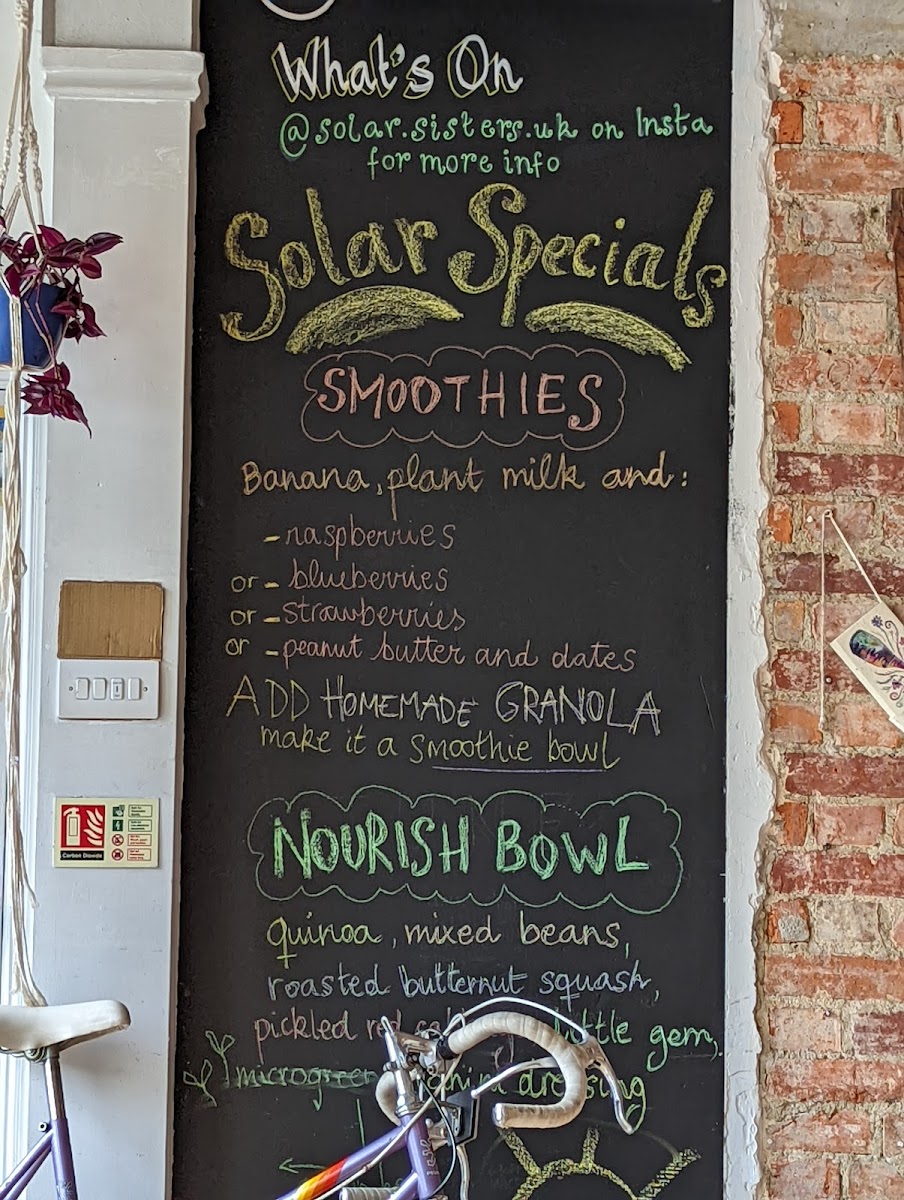 What's On
@solar.sisters.uk on Insta
for more info
Solar Specials
SMOOTHIES
Banana, plant milk and:
- raspberries
or - blueberries
or - strawberries
or - peanut butter and dates
ADD HOMEMADE GRANOLA
make it a smoothie bowl
NOURISH BOWL
quinoa, mixed beans,
roasted butternut squash,
pickled red little gem,
dressing
Carbon Dioxide